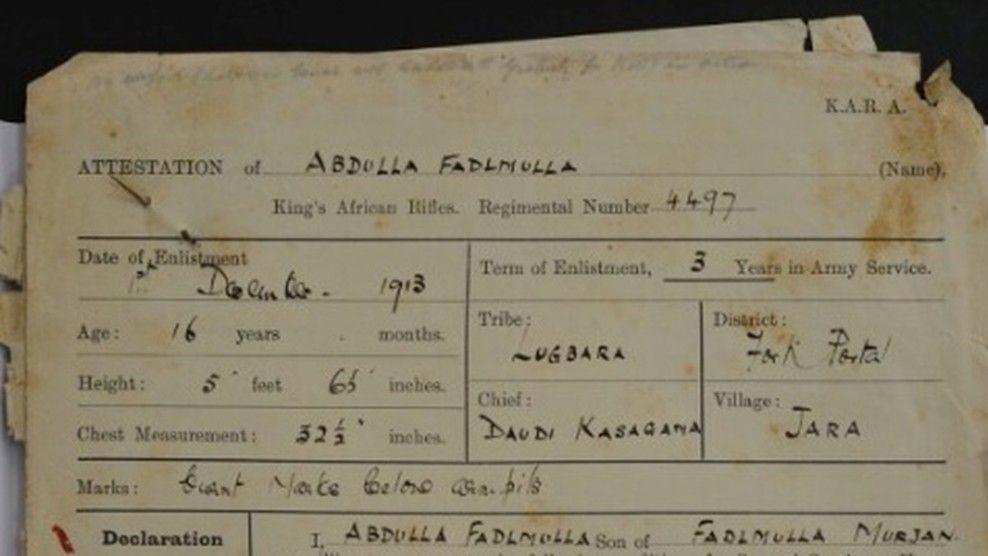 K.A.R. A.
ATTESTATION of ABDULLA FADLMULLA (Name),
King's African Rifles. Regimental Number 4497
Date of Enlistment
1st December. 1913
Term of Enlistment, 3 Years in Army Service.
Age: 16 years . months.
Tribe:
LUGBARA
District:
Fort Portal
Height: 5 feet 6½ inches.
Chief:
DAUDI KASAGAMA
Village:
JARA
Chest Measurement: 32½ inches.
Marks: Burnt Marks below armpits
Declaration
I, ABDULLA FADLMULLA Son of FADLMULLA MURJAN